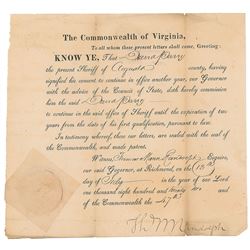 The Commonwealth of Virginia,
To all whom these present letters shall come, Greeting:
KNOW YE, That
the present Sheriff of Augusta county, having
signed his consent to continue in office another year, our Governor
with the advice of the Council of State, doth hereby commission
him the said
to continue in the said office of Sheriff until the expiration of two
years from the date of his first qualification, pursuant to law.
In testimony whereof, these our letters, are sealed with the seal of
the Commonwealth and made patent.
Witness, Thomas Mann Randolph, Esquire,
our said Governor, at Richmond, on the
day of July in the year of our Lord
one thousand eight hundred and twenty two and
of the Commonwealth the 47th
Th M Randolph